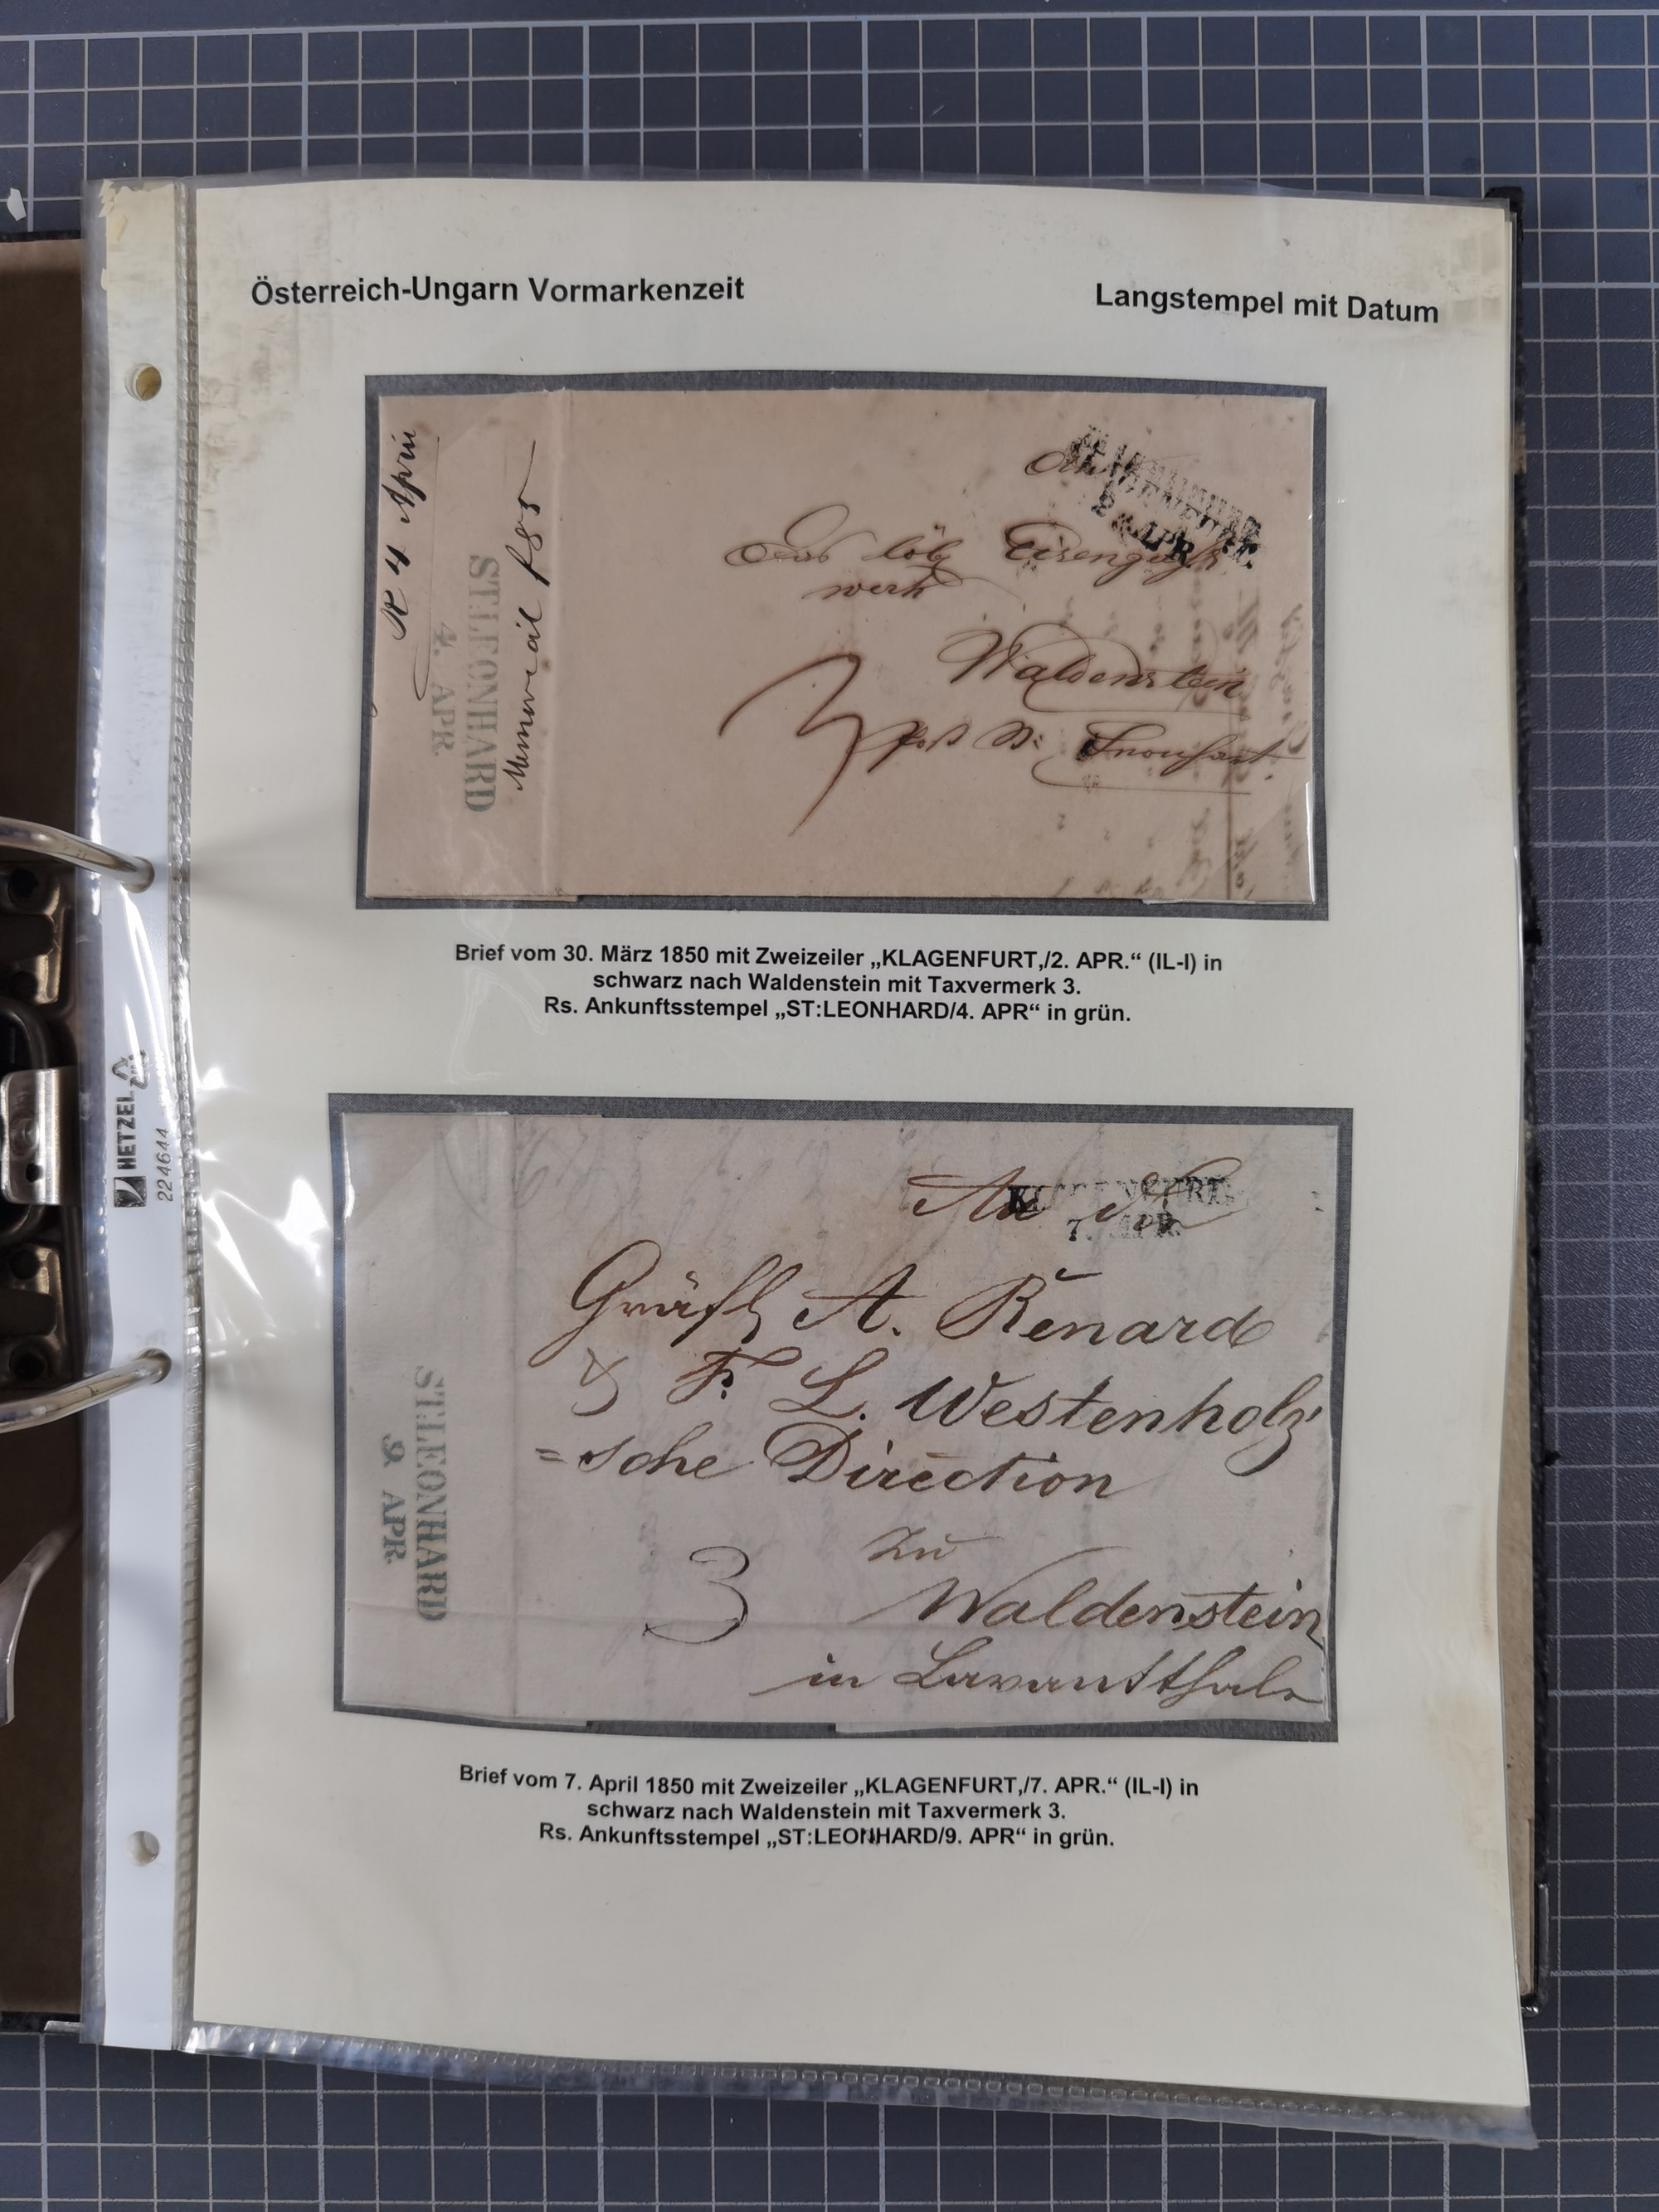 Österreich-Ungarn Vormarkenzeit
Langstempel mit Datum
4 April
ST:LEONHARD
4. APR.
Memorial
An
Das löbl Eisenguß
werk
Waldenstein
3
Post St:
APR.
Brief vom 30. März 1850 mit Zweizeiler „KLAGENFURT,/2. APR.“ (IL-I) in
schwarz nach Waldenstein mit Taxvermerk 3.
Rs. Ankunftsstempel „ST:LEONHARD/4. APR“ in grün.
ST:LEONHARD
9. APR.
An die
KLAGENFURT,
7. APR.
Gräfl A. Renard
& F. L. Westenholz
=sche Direction
zu
3
Waldenstein
in Lavantthale
Brief vom 7. April 1850 mit Zweizeiler „KLAGENFURT,/7. APR.“ (IL-I) in
schwarz nach Waldenstein mit Taxvermerk 3.
Rs. Ankunftsstempel „ST:LEONHARD/9. APR“ in grün.
HETZEL
224644